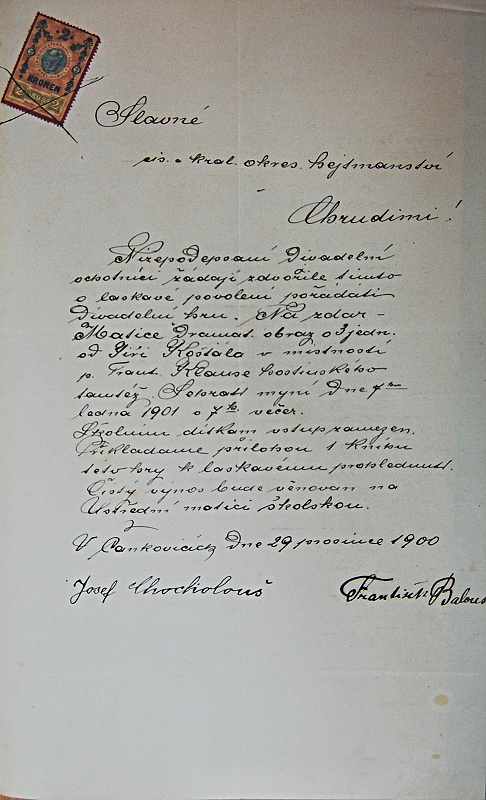 2
KRONEN
2
Slavné
cís. a král. okres. hejtmanství
Chrudimi!
Nížepodepsaní divadelní
ochotníci žádají zdvořile tímto
o laskavé povolení pořádati
divadelní hru. Na zdar-
Matice Dramat. obraz o 3 jedn.
od Jiří Košťála v místnosti
p. Frant. Klause hostinského
tamtéž. Sehrati myní dne
ledna 1901 o 7 h. večer.
Školním dítkám vstup zamezen.
Přikládáme přílohou 1 knihu
této hry k laskavému prohlédnutí.
Čistý výnos bude věnován na
Ústřední matici školskou.
V Jankovicích dne 29 prosince 1900
Josef Chocholouš
František